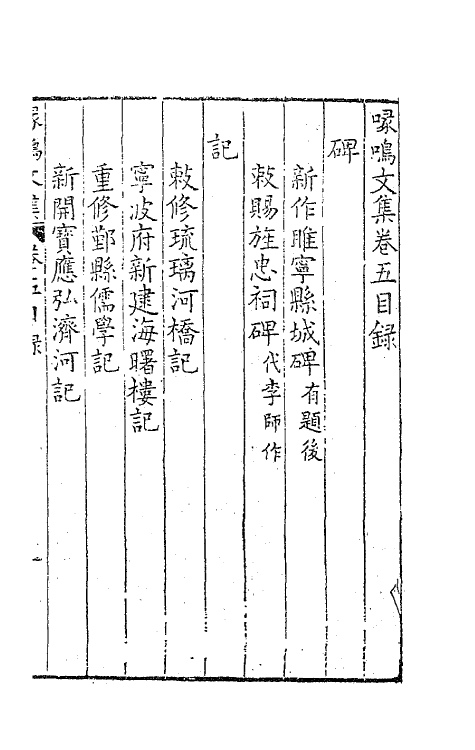 喙鳴文集卷五目録
碑
新作睢寧縣城碑有題後
敕賜旌忠祠碑代李師作
記
敕修琉璃河橋記
寧波府新建海曙樓記
重修鄞縣儒學記
新開寶應弘濟河記
喙鳴文集 卷五目録 一